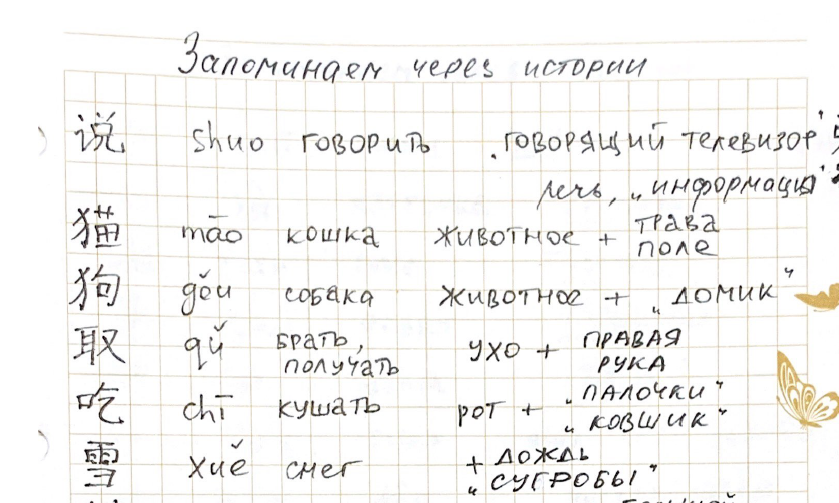 Запоминаем через истории
说 shuo говорить „говорящий телевизор"
речь, „информация"
猫 māo кошка животное + трава
поле
狗 gǒu собака животное + „домик"
取 qǔ брать, получать ухо + правая
рука
吃 chī кушать рот + „палочки"
„ковшик"
雪 xuě снег + дождь
„сугробы"